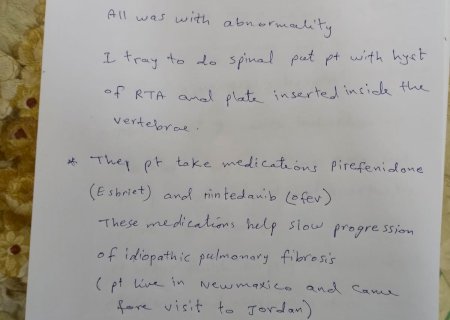 All was with abnormality
I tray to do spinal put pt with hyst
of RTA and plate inserted inside the
vertebrae.
* They pt take medications pirefenidone
(Esbriet) and nintedanib (ofev)
These medications help slow progression
of idiopathic pulmonary fibrosis
(pt live in Newmaxico and came
fore visit to Jordan)